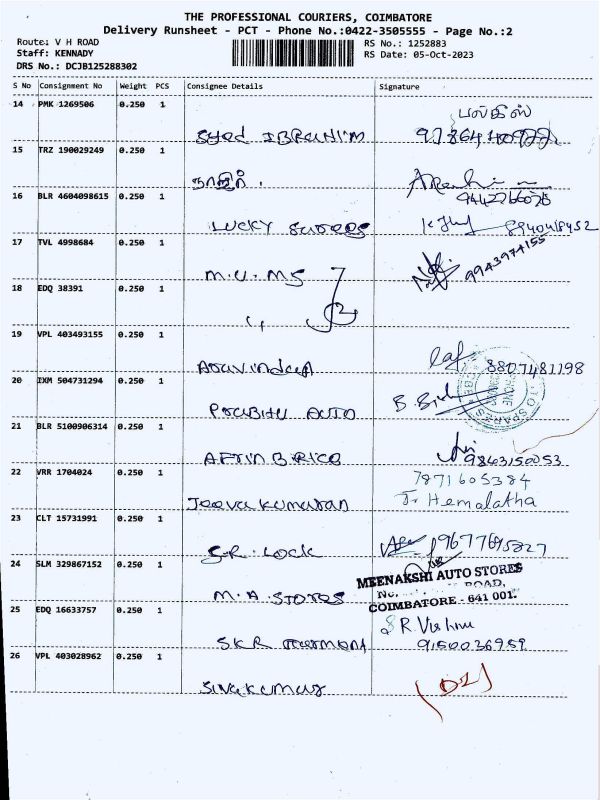 THE PROFESSIONAL COURIERS, COIMBATORE
Delivery Runsheet - PCT - Phone No.:0422-3505555 - Page No.:2
Route: V H ROAD
RS No.: 1252883
Staff: KENNADY
RS Date: 05-Oct-2023
DRS No.: DCJB125288302
S No Consignment No Weight PCS Consignee Details Signature
14 PMK 1269506 0.250 1
Syed IBRAHIM
15 TRZ 190029249 0.250 1
9442766076
16 BLR 4604098615 0.250 1
LUCKY 8940418452
17 TVL 4998684 0.250 1
M.U.MS 9943974155
18 EDQ 38391 0.250 1
19 VPL 403493155 0.250 1
Aravind 8807481198
20 IXM 504731294 0.250 1
PRABHU AUTO
21 BLR 5100906314 0.250 1
9843150053
22 VRR 1704024 0.250 1
7871605384
Jeevakumaran Hemalatha
23 CLT 15731991 0.250 1
S.R. LOCK 9677695827
24 SLM 329867152 0.250 1
MEENAKSHI AUTO STORES
No. ROAD,
M.A. STORES
COIMBATORE - 641 001.
25 EDQ 16633757 0.250 1
R. Vishnu
SKR 9150036959
26 VPL 403028962 0.250 1
Sivakumar